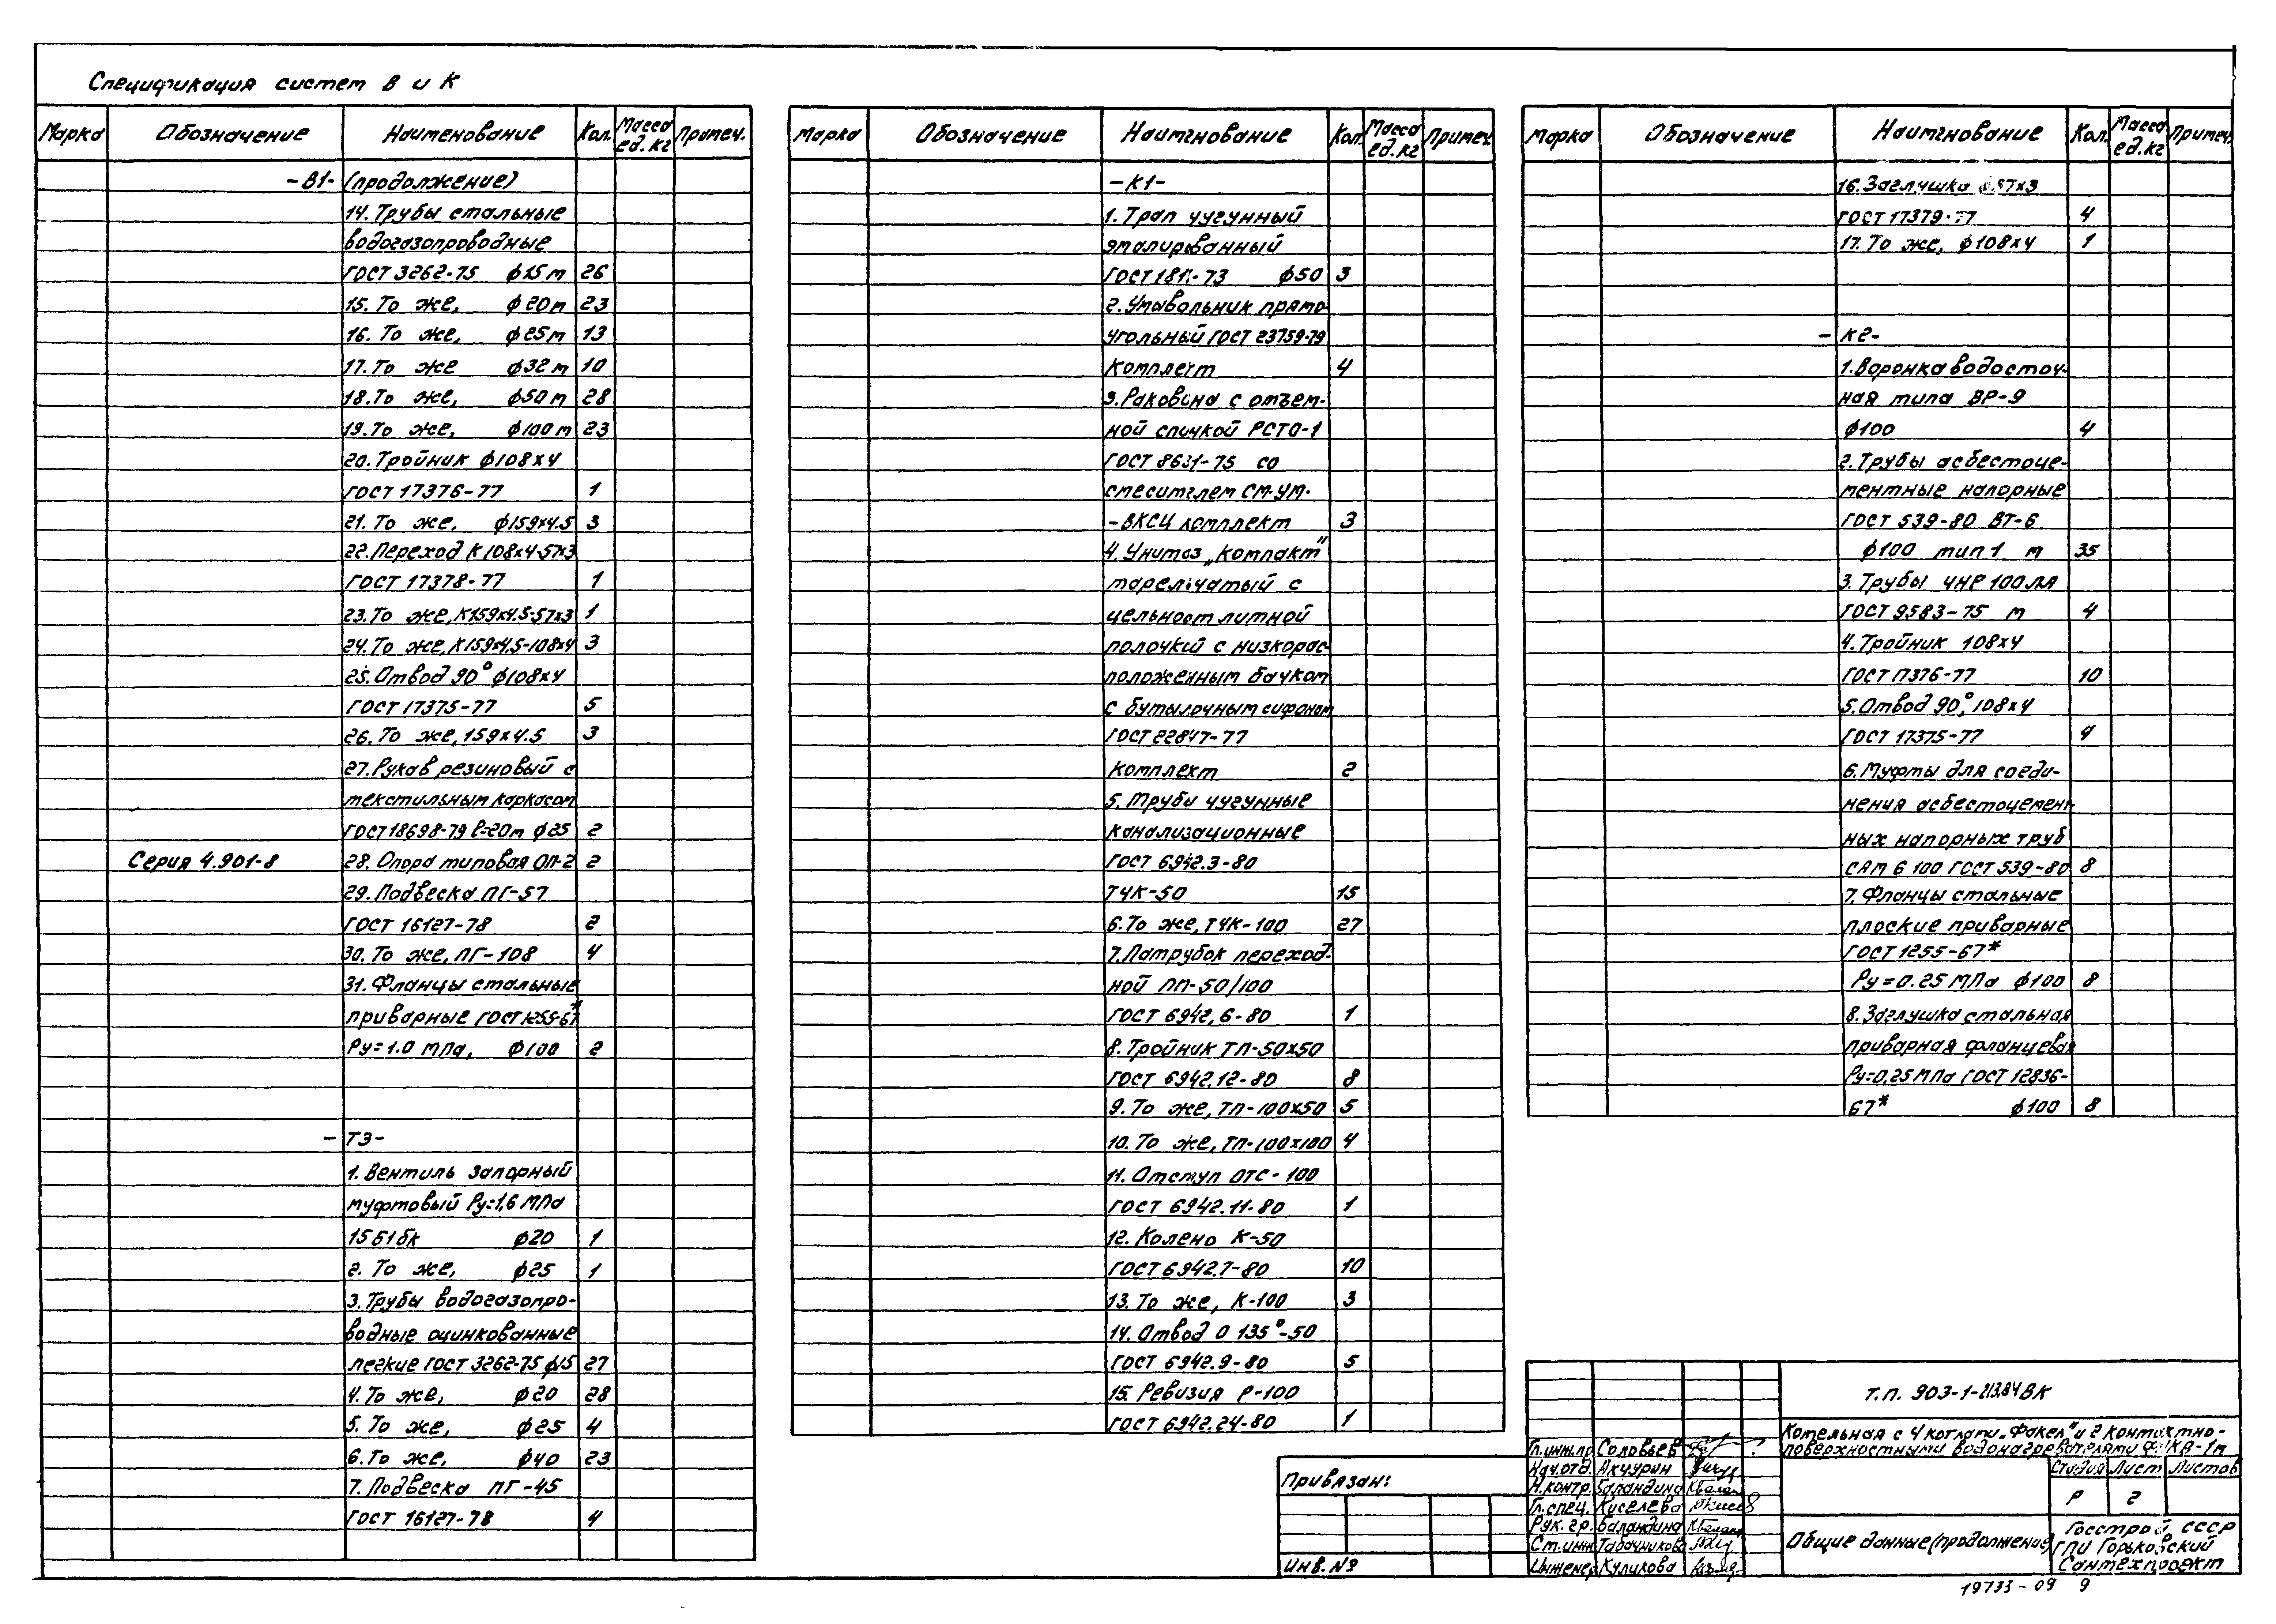 Спецификация систем В и К
Марка Обозначение Наименование Кол. Масса ед.кг Примеч.
-В1- (продолжение)
14. Трубы стальные
водогазопроводные
ГОСТ 3262-75 ф15 м 26
15. То же, ф20м 23
16. То же, ф25м 13
17. То же ф32м 10
18. То же, ф50м 28
19. То же, ф100м 23
20. Тройник ф108х4
ГОСТ 17376-77 1
21. То же, ф159х4.5 3
22. Переход К108х4-57х3
ГОСТ 17378-77 1
23. То же, К159х4.5-57х3 1
24. То же, К159х4,5-108х4 3
25. Отвод 90° ф108х4
ГОСТ 17375-77 5
26. То же, 159х4.5 3
27. Рукав резиновый с
текстильным каркасом
ГОСТ 18698-79 ℓ=20м ф25 2
Серия 4.901-8 28. Опора типовая ОП-2 2
29. Подвеска ПГ-57
ГОСТ 16127-78 2
30. То же, ПГ-108 4
31. Фланцы стальные
приварные ГОСТ 1255-67*
Ру=1.0 МПа, ф100 2
-Т3-
1. Вентиль запорный
муфтовый Ру=1,6 МПа
15Б1бк ф20 1
2. То же, ф25 1
3. Трубы водогазопро-
водные оцинкованные
легкие ГОСТ 3262-75 ф15 27
4. То же, ф20 28
5. То же, ф25 4
6. То же, ф40 23
7. Подвеска ПГ-45
ГОСТ 16127-78 4
Марка Обозначение Наименование Кол. Масса ед.кг Примеч.
-К1-
1. Трап чугунный
эмалированный
ГОСТ 1811-73 ф50 3
2. Умывальник прямо-
угольный ГОСТ 23759-79
Комплект 4
3. Раковина с отъем-
ной спинкой РСТО-1
ГОСТ 8631-75 со
смесителем СМ-УМ-
-ВКСЦ комплект 3
4. Унитаз „Компакт"
тарельчатый с
цельноотлитной
полочкой с низкорас-
положенным бачком
с бутылочным сифоном
ГОСТ 22847-77
комплект 2
5. Трубы чугунные
канализационные
ГОСТ 6942.3-80
ТЧК-50 15
6. То же, ТЧК-100 27
7. Патрубок переход-
ной ПП-50/100
ГОСТ 6942.6-80 1
8. Тройник ТП-50х50
ГОСТ 6942.12-80 8
9. То же, ТП-100х50 5
10. То же, ТП-100х100 4
11. Отступ ОТС-100
ГОСТ 6942.11-80 1
12. Колено К-50
ГОСТ 6942.7-80 10
13. То же, К-100 3
14. Отвод О 135°-50
ГОСТ 6942.9-80 5
15. Ревизия Р-100
ГОСТ 6942.24-80 1
Марка Обозначение Наименование Кол. Масса ед.кг Примеч.
16. Заглушка ф57х3
ГОСТ 17379-77 4
17. То же, ф108х4 1
-К2-
1. Воронка водосточ-
ная типа ВР-9
ф100 4
2. Трубы асбестоце-
ментные напорные
ГОСТ 539-80 ВТ-6
ф100 тип 1 м 35
3. Трубы ЧНР 100 ЛА
ГОСТ 9583-75 м 4
4. Тройник 108х4
ГОСТ 17376-77 10
5. Отвод 90°, 108х4
ГОСТ 17375-77 4
6. Муфты для соеди-
нения асбестоцемент-
ных напорных труб
САМ 6 100 ГОСТ 539-80 8
7. Фланцы стальные
плоские приварные
ГОСТ 1255-67*
Ру=0.25 МПа ф100 8
8. Заглушка стальная
приварная фланцевая
Ру=0,25 МПа ГОСТ 12836-
67* ф100 8
Привязан:
Инв. №
Т.П. 903-1-213.84 ВК
Котельная с 4 котлами „Факел" и 2 контактно-
поверхностными водонагревателями ФНКВ-1м
Гл.инж.пр. Соловьев
Нач.отд. Акчурин
Н.контр. Баландина
Гл.спец. Киселева
Рук. гр. Баландина
Ст.инж. Табачникова
Инженер Куликова
Стадия Лист Листов
Р 2
Общие данные (продолжение)
Госстрой СССР
ГПИ Горьковский
Сантехпроект
19733-09 9